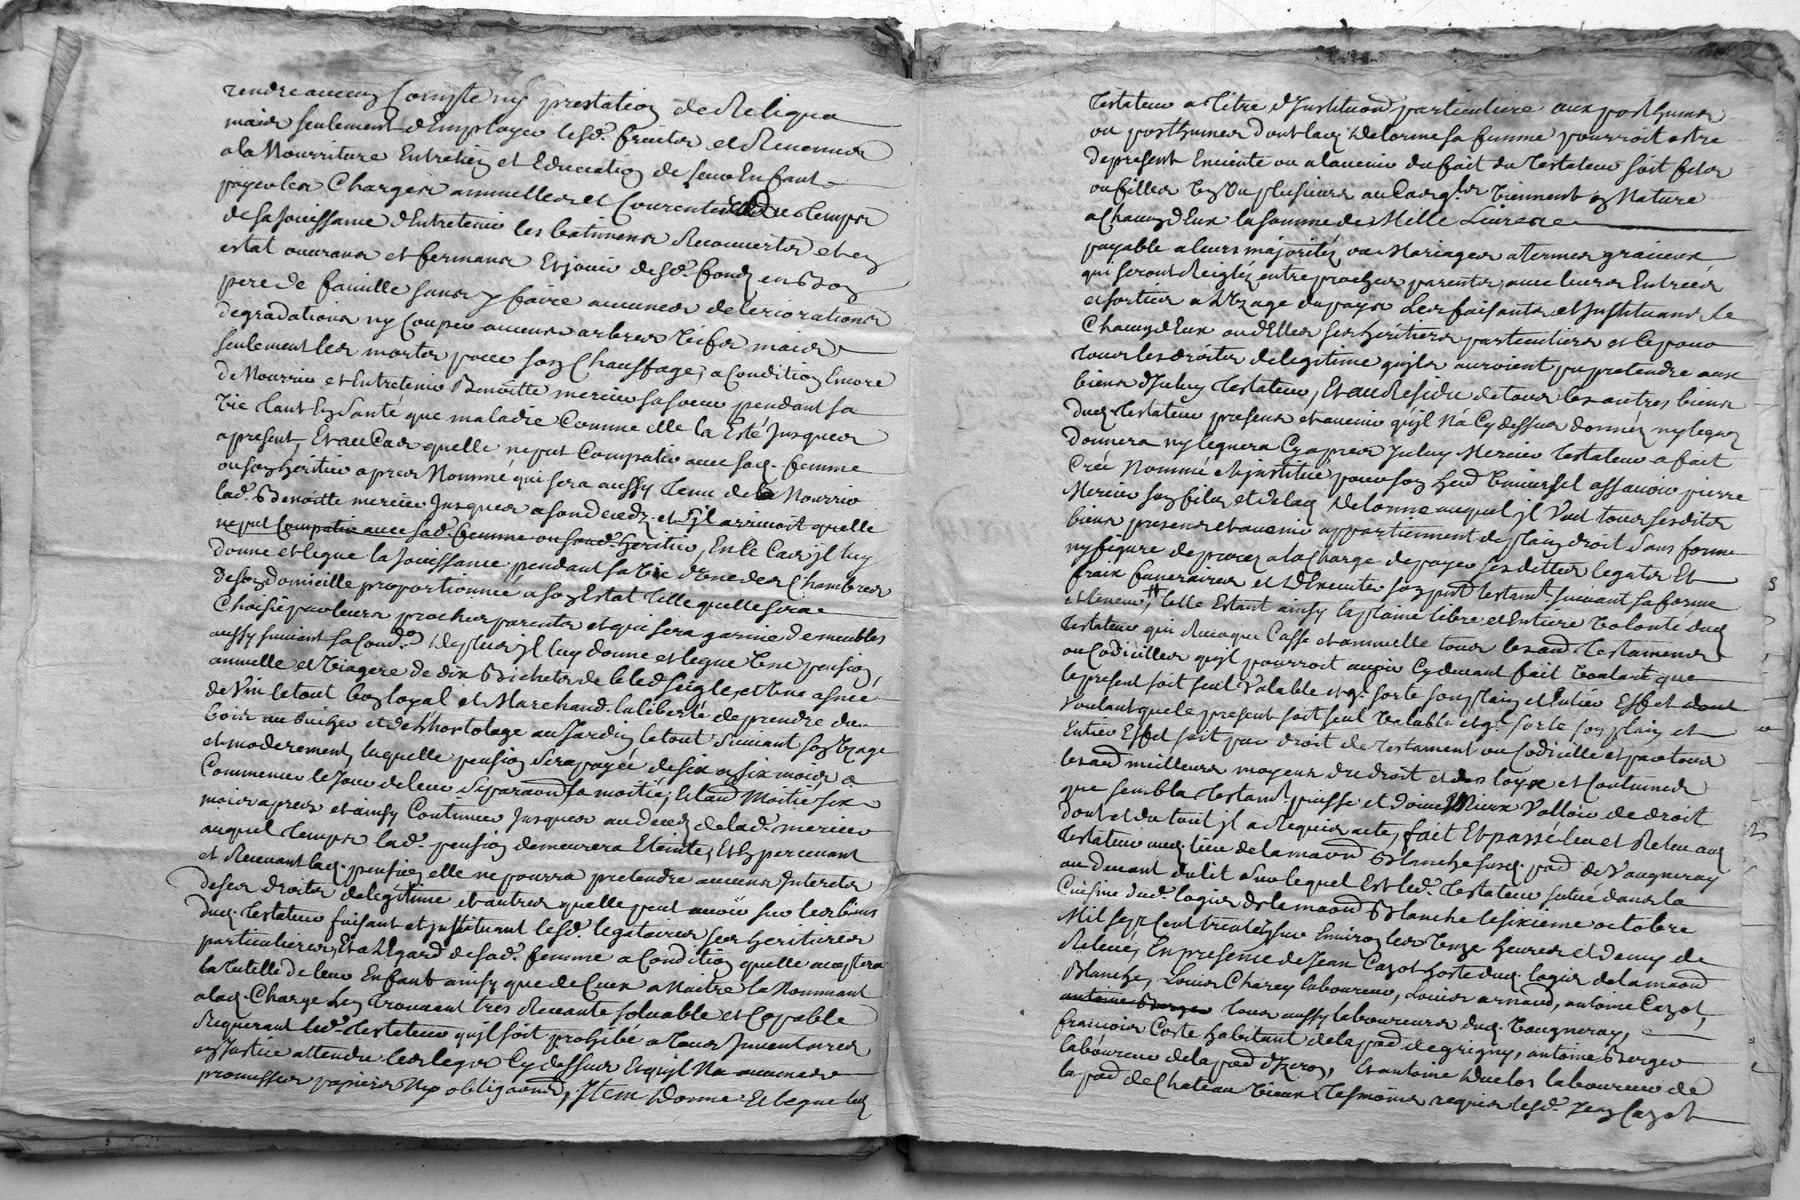 rendre aucun Compte ny prestation de Reliqua
mais seulement d'Employer lesd. fruits et Revenus
a la Nourriture Entretien et Education de ses Enfants
payer les Charges annuelles et Courentes du temps
de sa Jouissance d'Entretenir les batimens Recouverts et en
estat ouvrans et fermans Et jouir desd. fonds en Bon
pere de famille sans y faire aucunes deteriorations
degradations ny Couper aucuns arbres vifs mais
seulement les morts pour son Chauffage, a Condition Encore
de Nourrir et Entretenir Benoitte mercier sa soeur pendant sa
Vie tant En Santé que maladie Comme elle la Esté Jusques
apresent, Et au Cas quelle ne put Compatir avec sad. femme
ou son heritier apres Nommé qui sera aussy tenu de Nourrir
lad. Benoitte mercier Jusques a son deceds, et s'jl arrivoit quelle
ne put Compatir avec sad. femme ou sond. heritier, En Ce Cas jl luy
donne et legue la Jouissance pendant sa Vie d'Une des Chambres
de son domicille proportionnée a son Estat telle quelle sera
Choisie par leurs proches parents et que sera garnie de meubles
aussy suivant sa Condon. De plus jl luy donne et legue Une pension
annuelle et Viagere de dix Bichets de bled seigle, et Une asnée
de Vin le tout bon loyal et Marchand, la liberté de prendre du
bois au bucher et de L'hortolage au Jardin le tout suivant son Usage
et moderement, laquelle pension sera payée de six a six mois a
Commencer le Jour de leur separaon la moitié, Et laud. Moitié six
mois apres et ainsy Continuer Jusques au deceds de lad. mercier
auquel temps lad. pension demeurera Eteinte, Et En percevant
et Recevant lad. pension elle ne pourra pretendre aucuns Interets
de ses droits de legitime et autres quelle peut avoir sur les biens
dud. testateur faisant et jnstituant lesd. legataires ses heritieres
particulieres, Et a L'Egard de sad. femme a Condition quelle acceptera
La tutelle de leurs Enfants ainsy que de Ceux a Naitre la Nommant
a lad. Charge La trouvant tres Recevante solvable et Capable
Requerant led. testateur qu'jl soit prohibé a tous Jnventaires
en Justice attendu les legs Cy dessus Et qu'jl Na aucunes
promesses papiers Ny obligaons, Jtem Donne Et legue led.
testateur a titre d'Jnstituon particuliere aux posthumes
ou posthumes dont lad. Delorme sa femme pourroit estre
de present Enceinte ou a lavenir du fait du testateur soit fils
ou filles Un Ou plusieurs au Cas qu'ls viennent en Nature
a Chacun d'Eux la somme de Mille Livres
payable a leurs majorités ou Mariages a termes gracieux
qui seront Reiglés entre proches parents, avec leurs Entrées
et sorties a L'Uzage du pays Les faisants et Jnstituans le
Chacun d'Eux ou d'Elles ses heritiers particuliers et Ce pour
tous les droits de legitime qu'jls auroient pu pretendre aux
biens d'Jceluy testateur, Et au Residu de tous les autres biens
dud. testateur presens et avenir qu'jl Na Cy dessus donnez ny leguez
donnera ny leguera Cy apres Jceluy Mercier testateur a fait
Créé Nommé et Jnstitué pour son herd. Universel assavoir pierre
Mercier son fils et de lad. Delorme auquel jl Veut tous sesdits
biens presens et avenir appartiennent de plain droit sans forme
ny figure de proces a la Charge de payer ses dettes legats Et
fraix funeraires et d'Executer son pnt. testamt. suivant sa forme
et teneur, telle Estant ainsy la plaine libre et Entiere volonté dud.
testateur qui Revoque Casse et annulle tous les aud. testamens
ou Codicilles qu'jl pourroit avoir Cy devant fait voulant que
le present soit seul Valable et q. sorte son plain et Entier Effet dont
Voulant que le present soit seul Valable et q. sorte son plain et
Entier Effet soit par droit de testament ou Codicille et par tous
les aud. meilleurs moyens du droit et des loyx et Coutumes
que semblable testamt. puisse et doive Mieux Valloir de droit
dont et du tout jl a Requis acte, fait Et passé leu et Releu aud.
testateur aud. lieu de la maison Blanche susd. psse. de Vaugneray
au devant du lit sur lequel Est led. testateur scitué dans la
Cuisine dud. logis de la maison Blanche le sixieme octobre
Mil sept Cent trente Environ les Unze heures et demy de
Relevée, En presence de Jean Cazot hoste dud. logis de la maison
Blanche, Louis Charey laboureur, Louis arnaud, antoine Cazot,
antoine Berger tous aussy laboureurs dud. Vaugneray,
francois Coste habitant de la psse. de grigny, antoine Berger
laboureur de la psse. d'Yzeron, Et antoine Duclos laboureur de
la psse. de Chateau Vieux tesmoins requis lesd. Jean Cazot